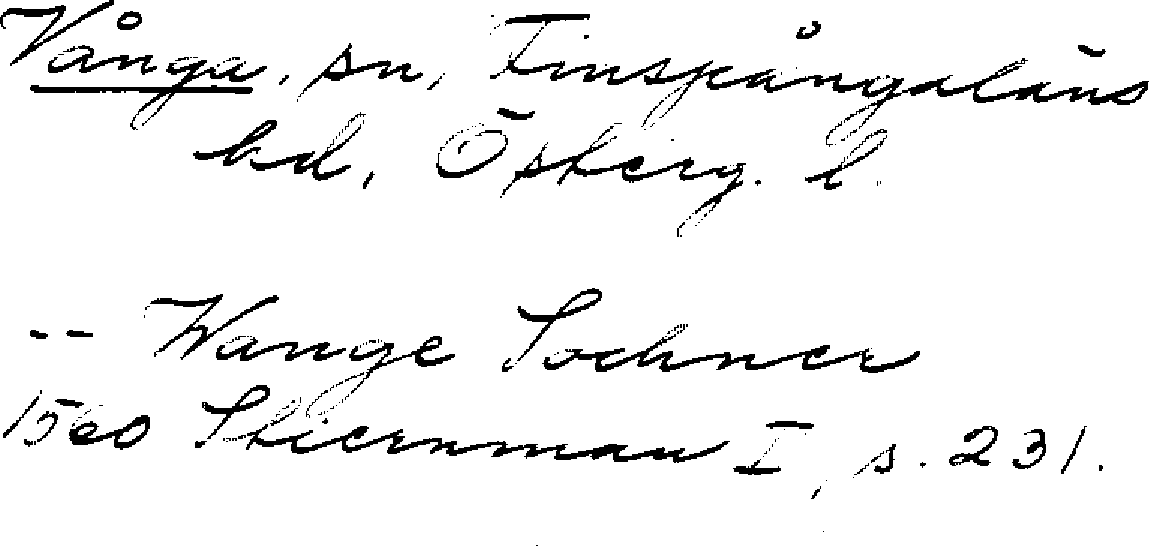 Vånga, sn, Finspångaläns
hd, Österg. l.
-- Wange Sochner
1560 Stiernman I, s. 231.